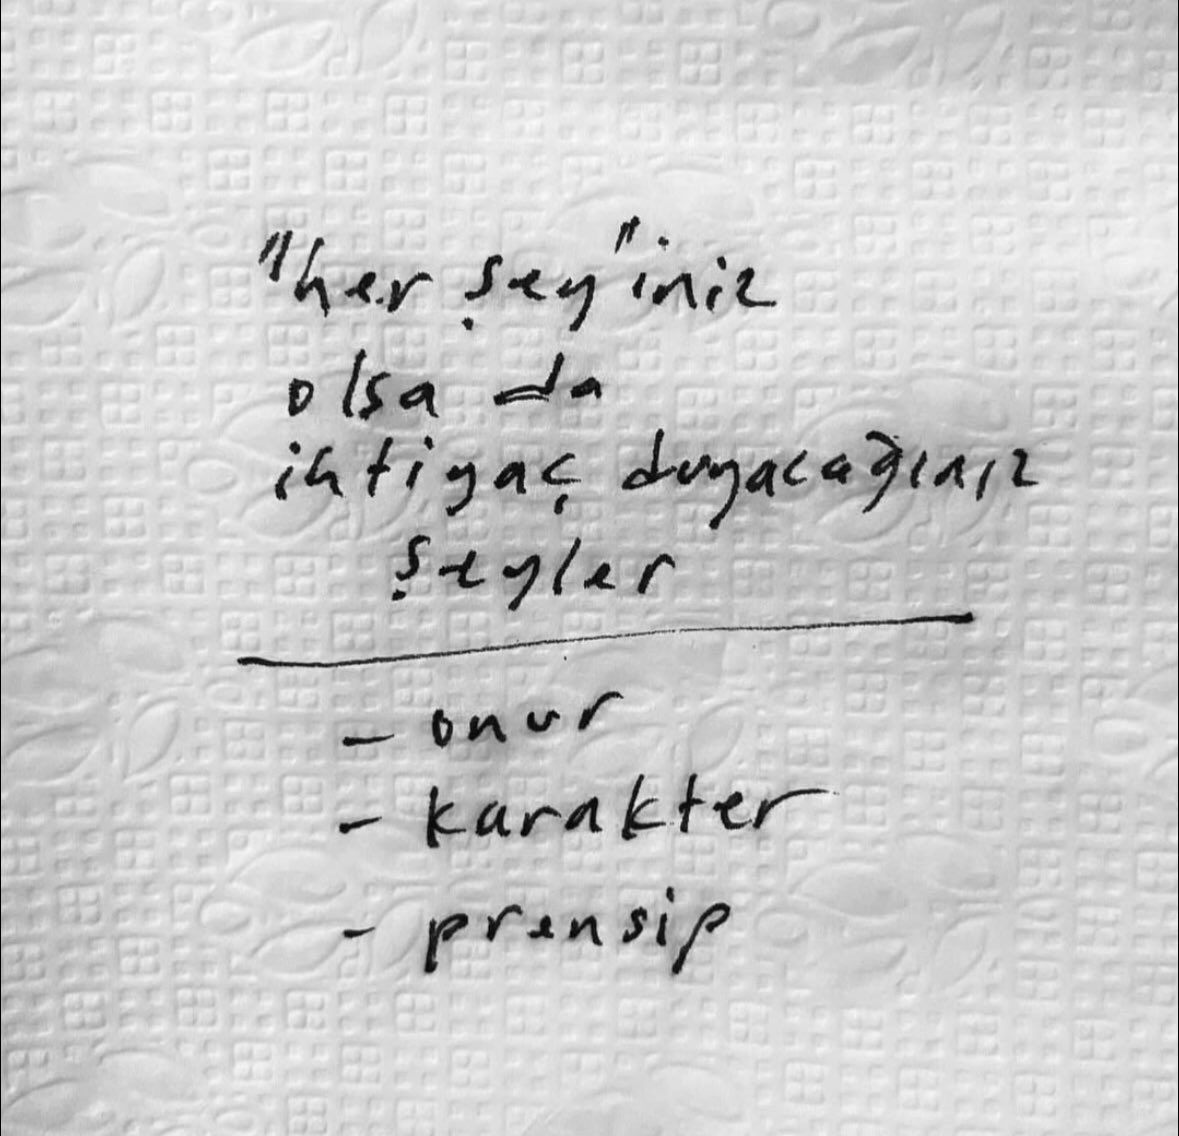 "her şey"iniz
olsa da
ihtiyaç duyacağınız
şeyler
- onur
- karakter
- prensip